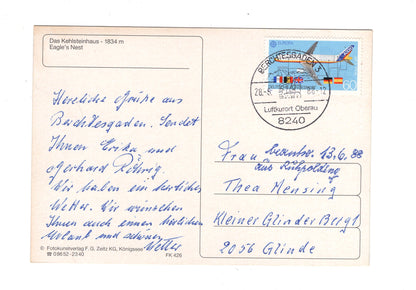 Das Kehlsteinhaus - 1834 m
Eagle's Nest
Herzliche Grüße aus
Berchtesgaden. Sendet
Ihnen Erika und
Gerhard Röhrig.
Wir haben ein herrliches
Wetter. Wir wünschen
Ihnen auch einen herrlichen
Urlaub und schönes
Wetter
© Fotokunstverlag F. G. Zeitz KG, Königssee
☎ 08652-2340
FK 426
EUROPA
60
BERCHTESGADEN 3
Luftkurort Oberau
8240
13.6.88
aus Ruhpolding
Frau
Thea Mensing
Kleiner Glinder Berg 1
2056 Glinde